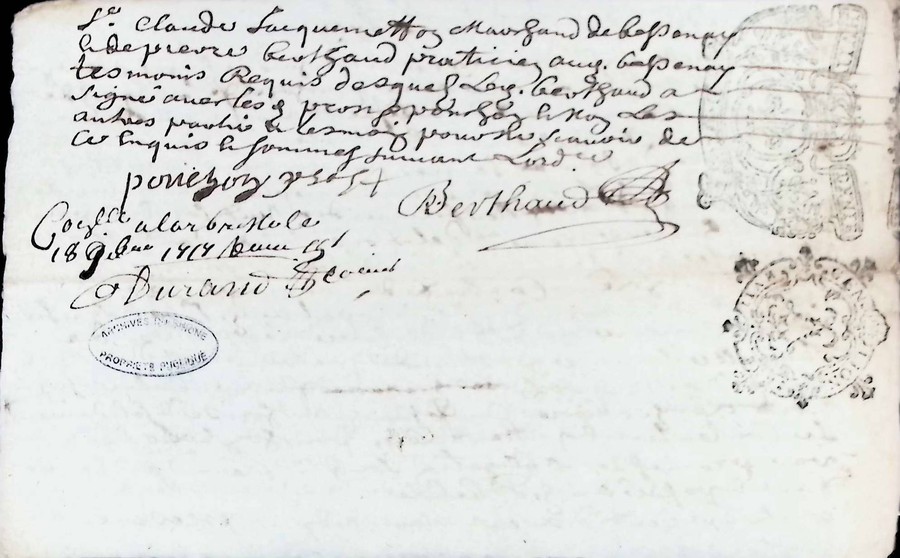 Sr. Claude Jacquemetton Marchand de bessenay
& de pierre berthaud praticien aud. bessenay
tesmoins Requis desquels Led. berthaud a
signé avec les d ponchon & non Les
autres partie & tesmoin pour ne scavoir de
ce Enquis & sommes suivant Lord.e
ponchon
Berthaud
Con.lle a larbresle
18 9bre 1717
Durand
ARCHIVES DU RHONE
PROPRIETE PUBLIQUE